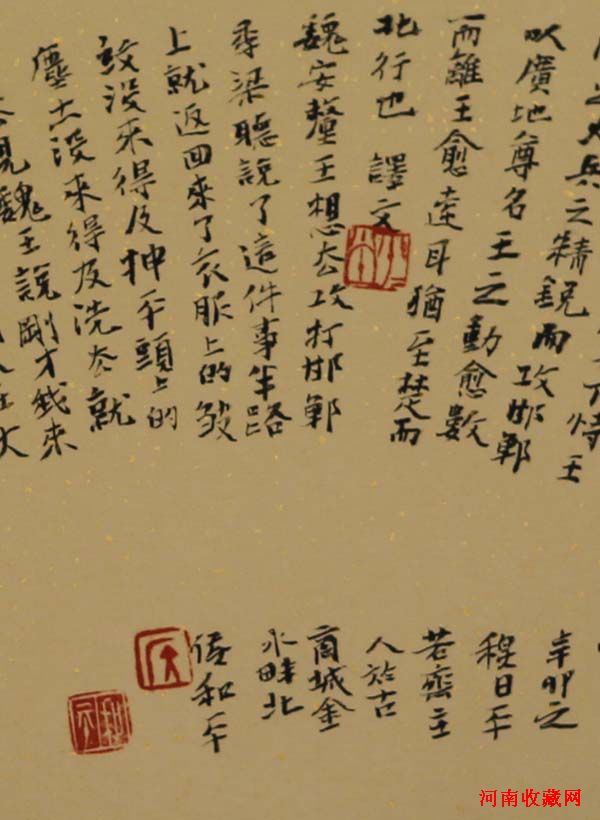 下恃王
之大兵之精銳而攻邯鄲
以廣地尊名王之動愈數
而離王愈遠耳猶至楚而
北行也 譯文
魏安釐王想去攻打邯鄲
季梁聽說了這件事半路
上就返回來了衣服上的皺
紋沒來得及抻平頭上的
塵土沒來得及洗去就
去見魏王說剛才我來
人在大
辛卯之
日平
若齋主
人於古
商城金
水畔北
和平
河南收藏网